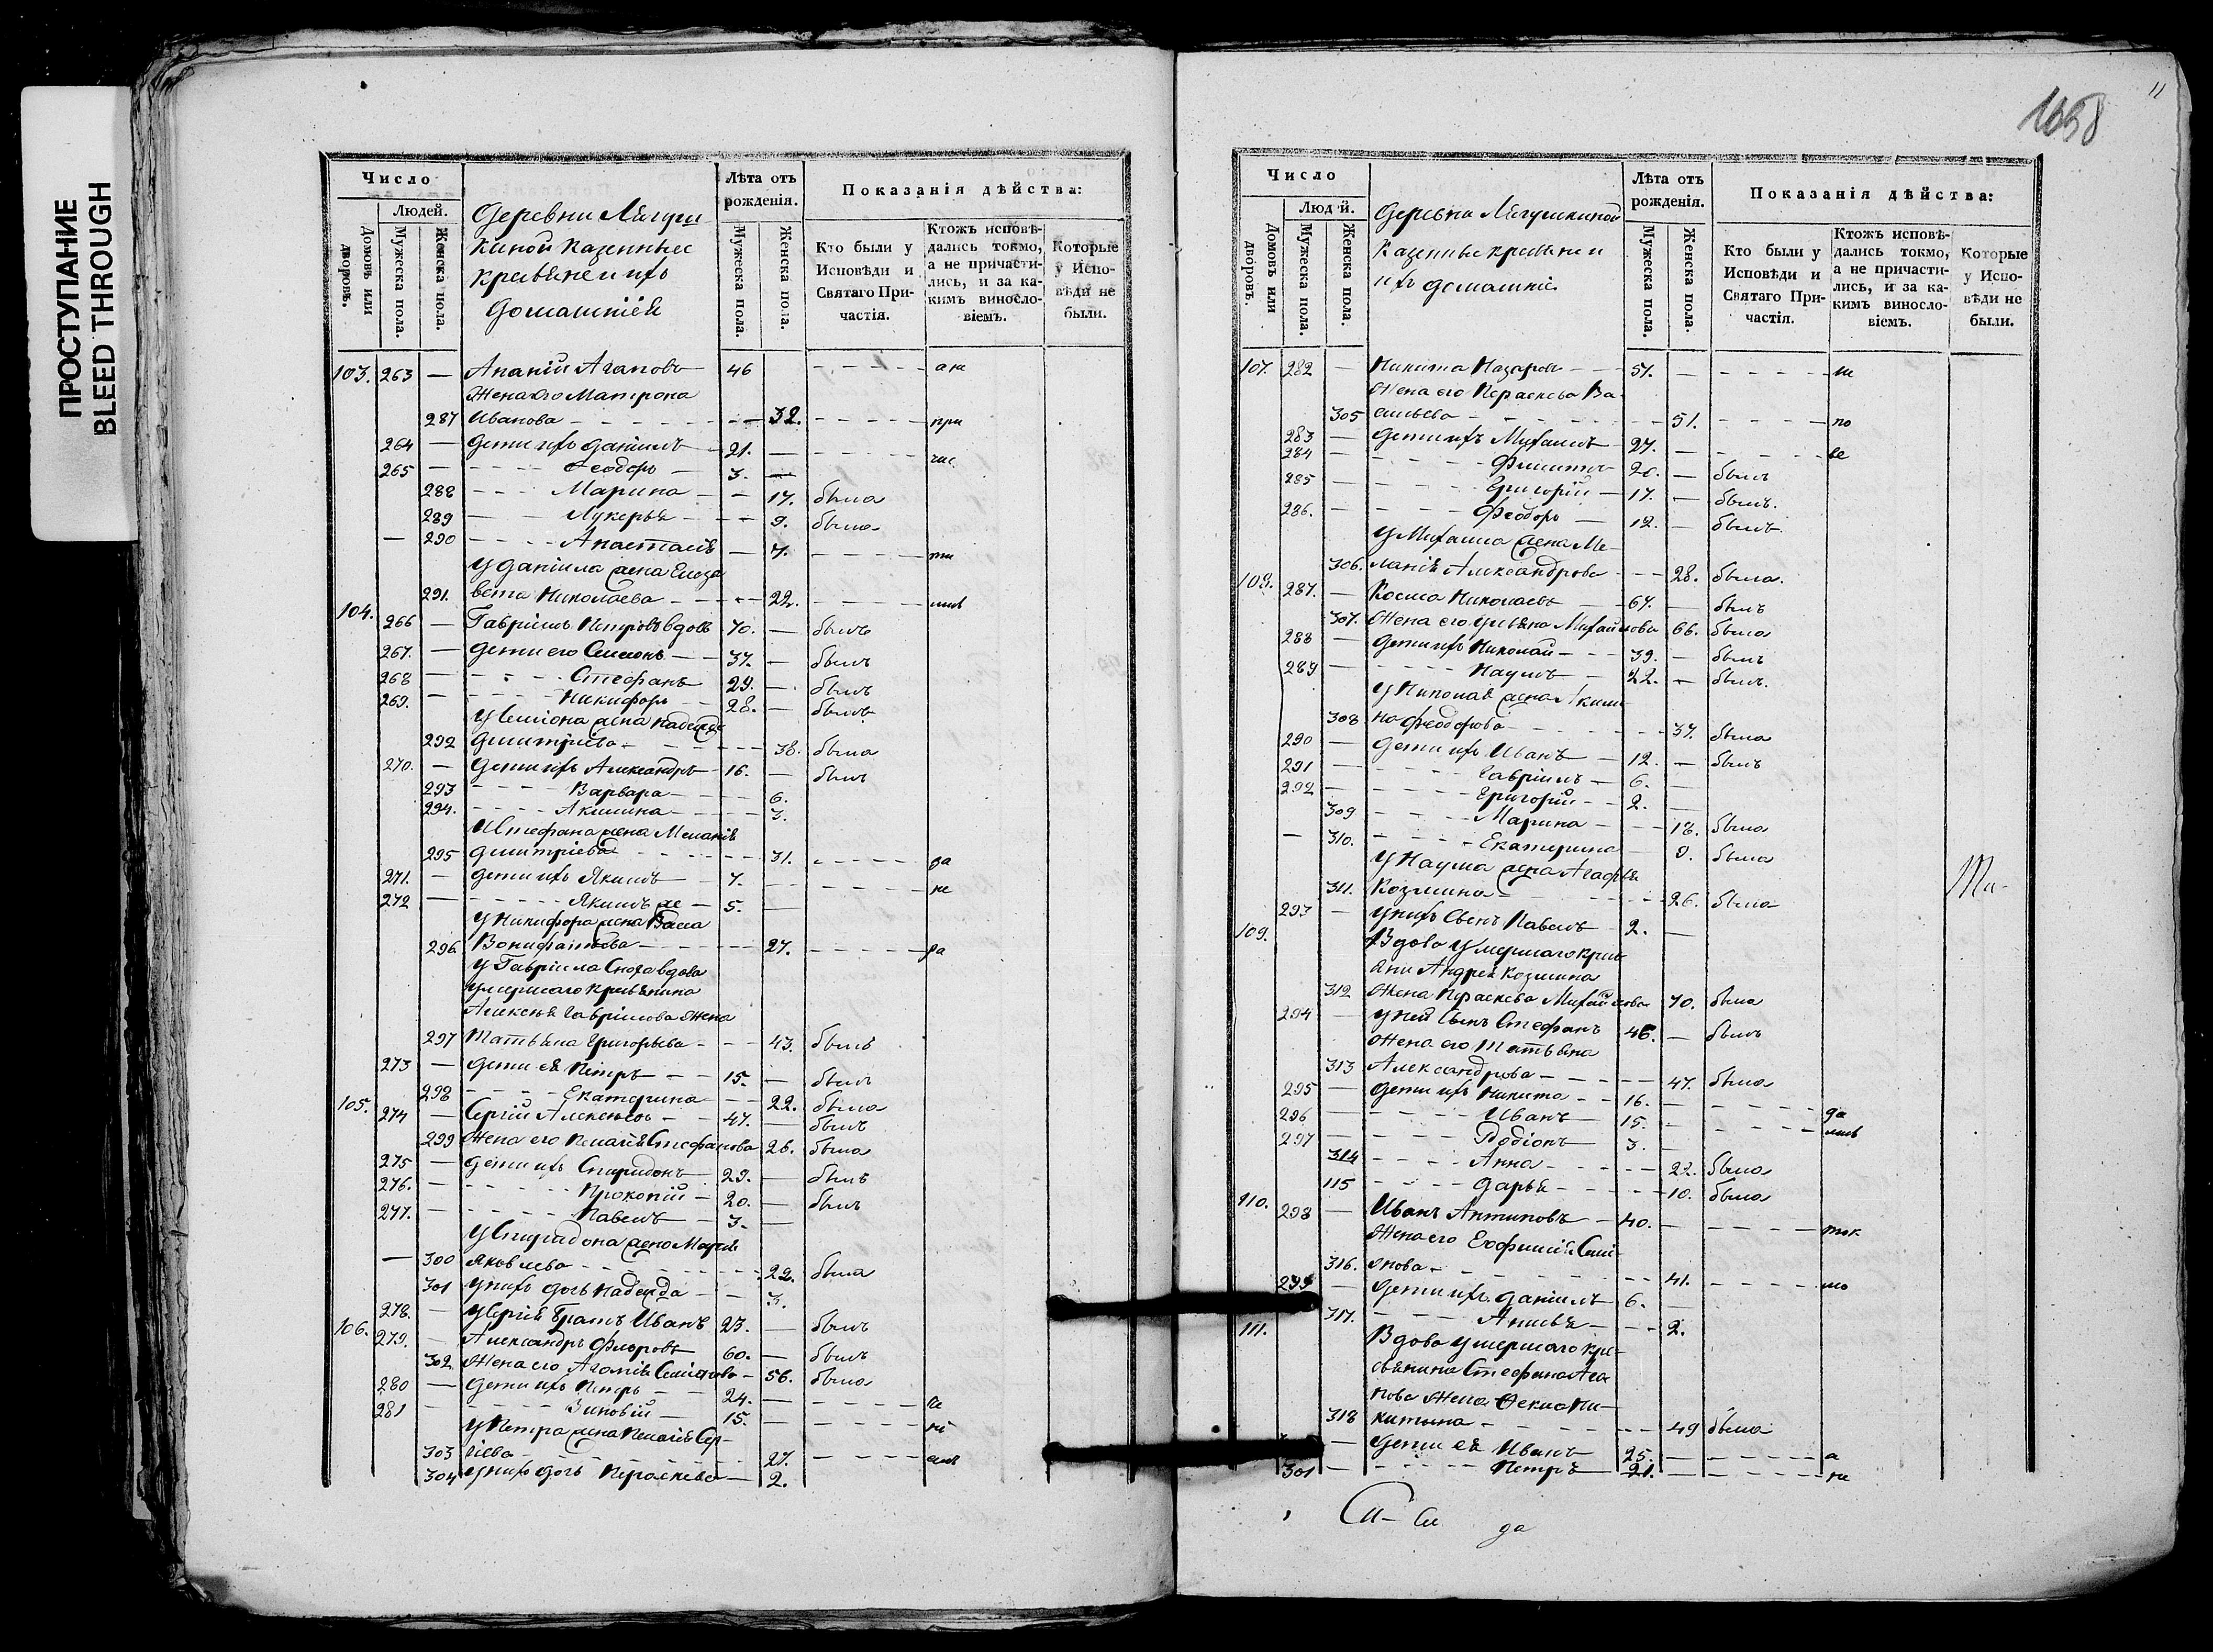 ПРОСТУПАНИЕ
BLEED THROUGH
Число
Людей.
Домовъ или дворовъ.
Мужеска пола.
Женска пола.
Деревни Лягуш
киной казенные
кресьяне и ихъ
домашнія
Лѣта отъ рожденія.
Мужеска пола.
Женска пола.
Показанія дѣйства:
Кто были у Исповѣди и Святаго Причастія.
Ктожъ исповѣдались токмо, а не причастились, и за какимъ винословіемъ.
Которые у Исповѣди не были.
103. 263 — Ананій Агаповъ 46
Жена его Матрона
287 Иванова 32. при
264 — Дети ихъ Даніилъ 21. —
265 — Феодоръ 3. —
288 Марина 17. была
289 Лукерья 9. была
290 Анастасія 7.
У Даніила жена Елеза
291. вета Николаева 22.
104. 266 — Гавріилъ Петровъ вдовъ 70. — былъ
267. — Дети его Симеонъ 37. — былъ
268 — Стефанъ 29. — былъ
269. — Никифоръ 28. — былъ
У Симіона жена Надежда
292 Димитріева 38. была
270. — Дети ихъ Александръ 16. — былъ
293 Варвара 6.
294. Акилина 3.
У Стефана жена Меланія
295 Димитріева 31. за
271. — Дети ихъ Якимъ 7. не
272 — Якимъ же 5. —
У Никифора жена Васса
296 Вонифатьева 27. ра
У Гавріила Сноха вдова
умершаго кресьянина
Алексея Гаврілова жена
297 Татьяна Григорьева 43. была
273 — Дети ея Петръ 15. — былъ
298 Екатерина 22. была
105. 274 — Сергій Алексеевъ 47. — былъ
299 Жена его Пелагія Стефанова 26. была
275 — Дети ихъ Спиридонъ 29. — былъ
276. — Прокопій 20. — былъ
277. — Павелъ 3. —
У Спиридона жена Марія
300 Яковлева 22. была
301 У нихъ дочь Надежда 3.
278. — У Сергія братъ Иванъ 23. — былъ
106. 279. — Александръ Флоровъ 60. — былъ
302 Жена его Агафія Симіонова 56. была
280 — Дети ихъ Петръ 24. —
281 — Зиновій 15. —
У Петра жена Пелагія Сер-
303 гіева 27.
304 У нихъ дочь Параскева 2.
11
1658
Число
Людей.
Домовъ или дворовъ.
Мужеска пола.
Женска пола.
Деревня Лягушкиной
казенные кресьяне и
ихъ домашніе
Лѣта отъ рожденія.
Мужеска пола.
Женска пола.
Показанія дѣйства:
Кто были у Исповѣди и Святаго Причастія.
Ктожъ исповѣдались токмо, а не причастились, и за какимъ винословіемъ.
Которые у Исповѣди не были.
107. 282 — Никита Назаровъ 57. —
Жена его Параскева Ва-
305 сильева 51. по
283 — Дети ихъ Михаилъ 27. —
284 — Филиппъ 20. — былъ
285 — Григорій 17. — былъ.
286. — Феодоръ 12. — былъ
У Михаила жена Ме-
306. ланія Александрова 28. была.
108. 287. — Косма Николаевъ 67. — былъ
307. Жена его Ульяна Михайлова 66. была
288 — Дети ихъ Николай 39. — былъ
289 — Наумъ 22. — былъ.
У Николая жена Акили-
308 на Феодорова 37. была
290 — Дети ихъ Иванъ 12. — былъ
291 — Гавріилъ 6. —
292 — Григорій 2. —
309 Марина 18. была
310. Екатерина 9. была
У Наума жена Агафья
311. Козмина 26. была
293 — У нихъ сынъ Павелъ 2. —
109. Вдова умершаго крисъ
яни Андрея Козмина
312 Жена Параскева Михайлова 70. была
294 — У ней сынъ Стефанъ 46. — былъ
Жена его Татьяна
313 Александрова 47. была
295 — Дети ихъ Никита 16. — да
296 — Иванъ 15. —
297 — Родіонъ 3. —
314 Анна 22. была
115 Дарья 10. была
110. 298 — Иванъ Антиповъ 40. — ток
Жена его Евфимія Сими-
316. онова 41. мо
299 — Дети ихъ Даніилъ 6. —
317. Анисья 2.
111. Вдова умершаго кре-
сьянина Стефана Ага
пова Жена Фекла Ни-
318 китина 49 была
— Дети ея Иванъ 25. — а
301 — Петръ 21. — не
да